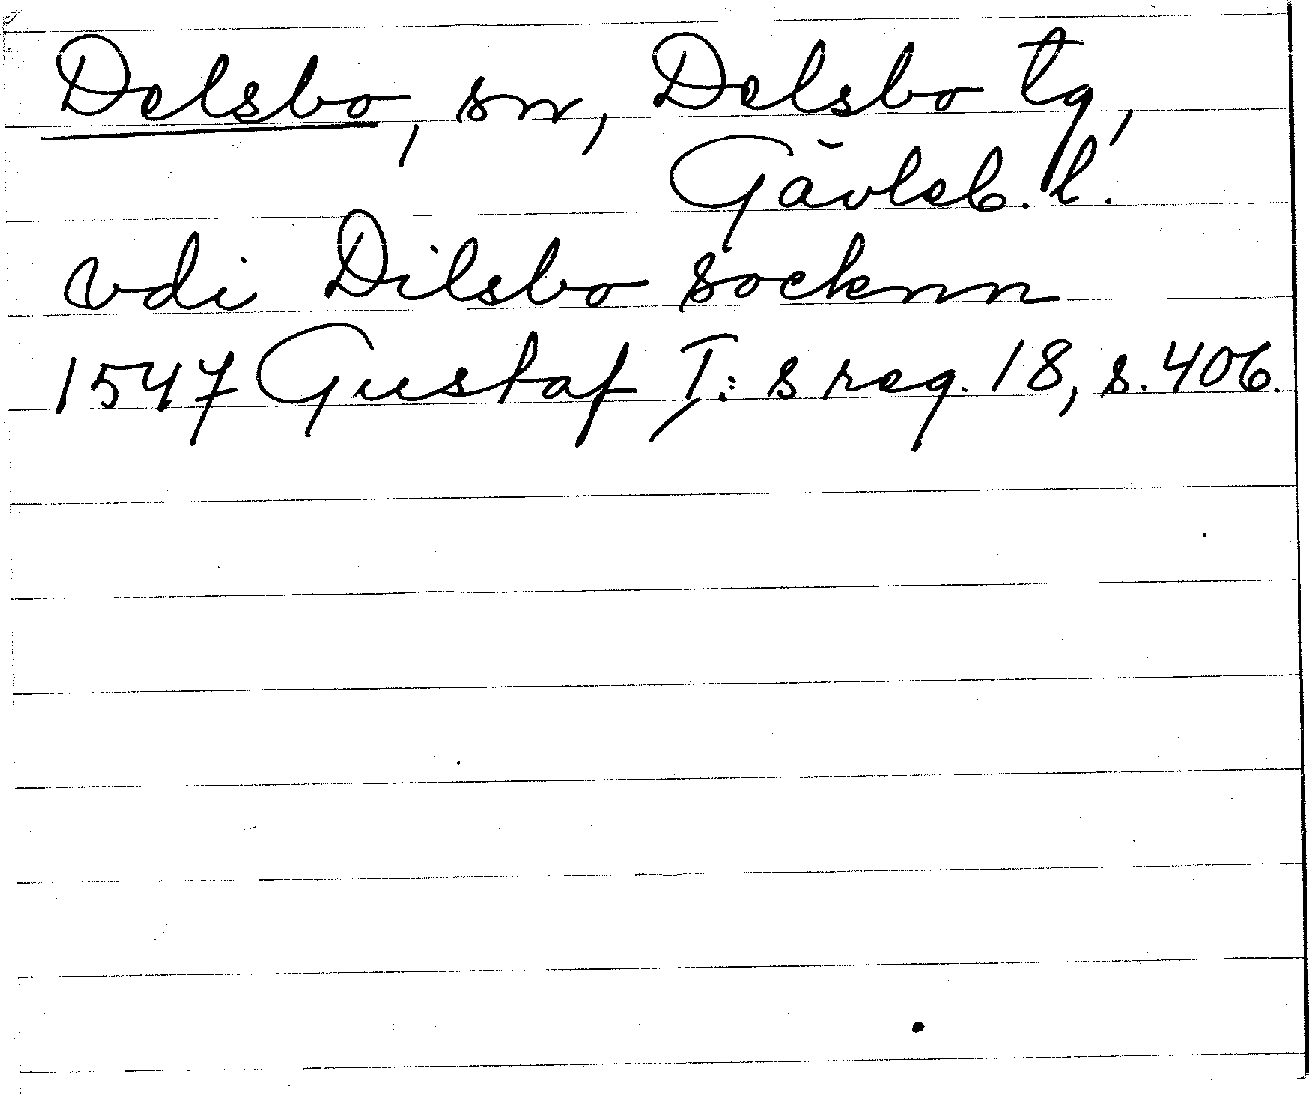 Delsbo, sn, Delsbo tg,
Gävleb. l.
vdi Dilsbo socknn
1547 Gustaf I:s reg. 18, s. 406.